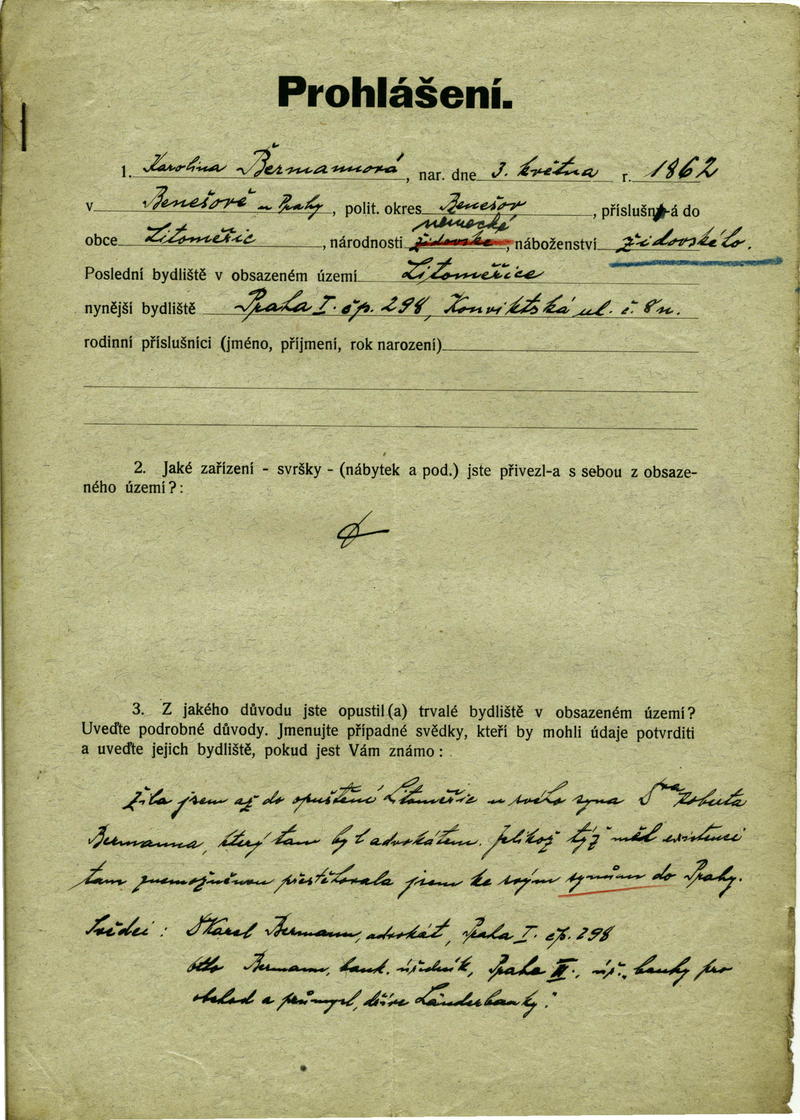 Prohlášení.
1. Karolina Bermannová, nar. dne 3. května r. 1862
v Benešově u Prahy, polit. okres Benešov, příslušná do
německé
obce Litoměřic, národnosti židovské, náboženství židovského.
Poslední bydliště v obsazeném území Litoměřice
nynější bydliště Praha I. čp. 298, Konviktská ul. č. 8n.
rodinní příslušníci (jméno, příjmení, rok narození)
2. Jaké zařízení - svršky - (nábytek a pod.) jste přivezl-a s sebou z obsaze-
ného území?:
3. Z jakého důvodu jste opustil(a) trvalé bydliště v obsazeném území?
Uveďte podrobné důvody. Jmenujte případné svědky, kteří by mohli údaje potvrditi
a uveďte jejich bydliště, pokud jest Vám známo:
Žila jsem až do opuštění Litoměřic u svého syna Dra Roberta
Bermanna, který tam byl advokátem. Jelikož týž měl existenci
tam znemožněnou přestěhovala jsem ke svým synům do Prahy.
Svědci: Dr Karel Bermann, advokát, Praha I. čp. 298
Otto Bermann, bank. úředník, Praha, úř. banky pro
obchod a průmysl, dříve Länderbanky.